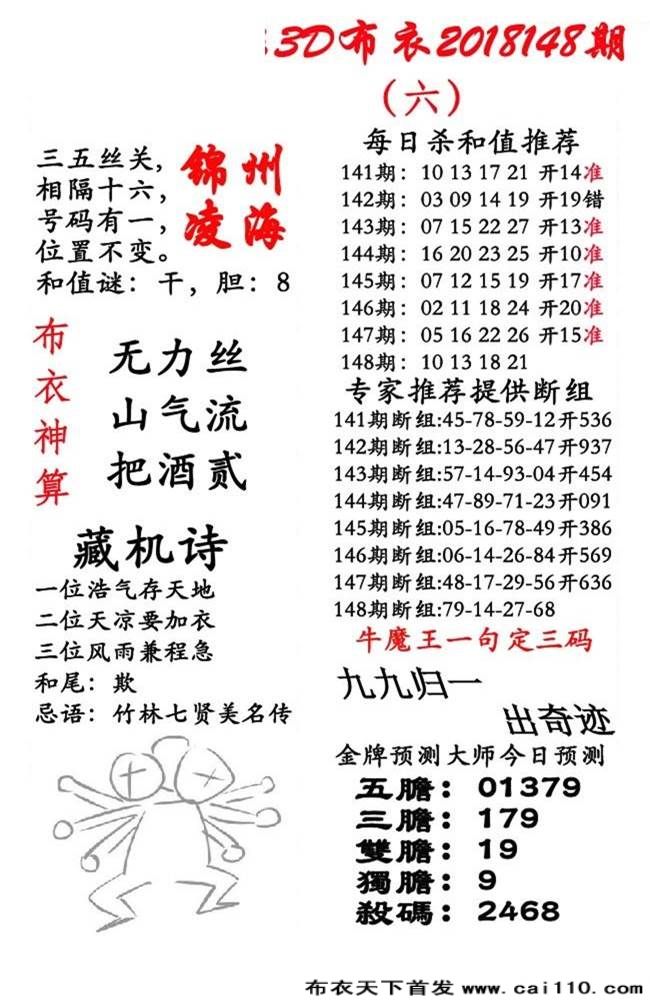 3D布衣2018148期
（六）
三五丝关，
相隔十六，
号码有一，
位置不变。
锦州
凌海
和值谜：干，胆：8
布衣神算
无力丝
山气流
把酒贰
藏机诗
一位浩气存天地
二位天凉要加衣
三位风雨兼程急
和尾：欺
忌语：竹林七贤美名传
每日杀和值推荐
141期：10 13 17 21 开14准
142期：03 09 14 19 开19错
143期：07 15 22 27 开13准
144期：16 20 23 25 开10准
145期：07 12 15 19 开17准
146期：02 11 18 24 开20准
147期：05 16 22 26 开15准
148期：10 13 18 21
专家推荐提供断组
141期断组:45-78-59-12开536
142期断组:13-28-56-47开937
143期断组:57-14-93-04开454
144期断组:47-89-71-23开091
145期断组:05-16-78-49开386
146期断组:06-14-26-84开569
147期断组:48-17-29-56开636
148期断组:79-14-27-68
牛魔王一句定三码
九九归一
出奇迹
金牌预测大师今日预测
五膽：01379
三膽：179
雙膽：19
獨膽：9
殺碼：2468
布衣天下首发 www.cai110.com